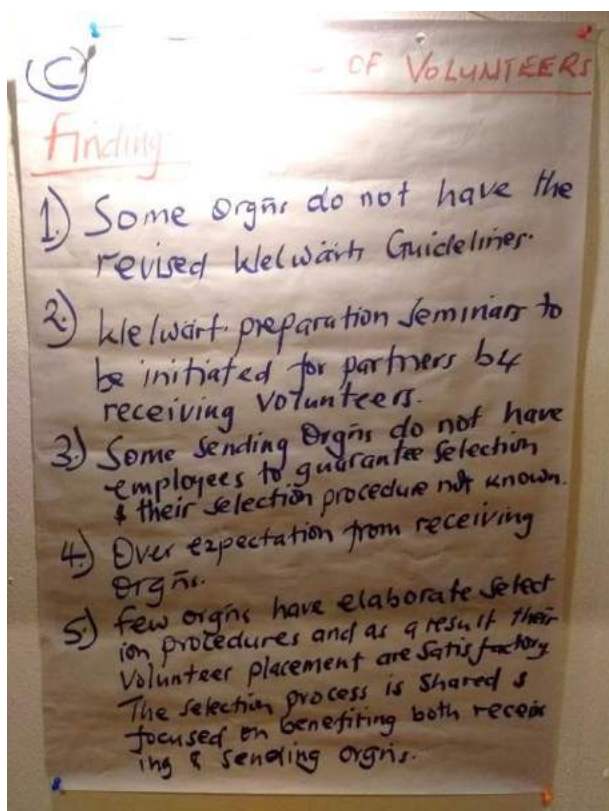 C
OF VOLUNTEERS
Finding
1.) Some Orgñs do not have the
revised Welwärts Guidelines.
2.) Welwärt preparation Seminars to
be initiated for partners b4
receiving Volunteers.
3.) Some Sending Orgñs do not have
employees to guarantee Selection
& their Selection procedure not known.
4.) Over expectation from receiving
Orgñs.
5.) few orgñs have elaborate Select
ion procedures and as a result their
Volunteer placement are Satisfactory
The Selection process is Shared &
focused on benefiting both receiv
ing & Sending orgñs.